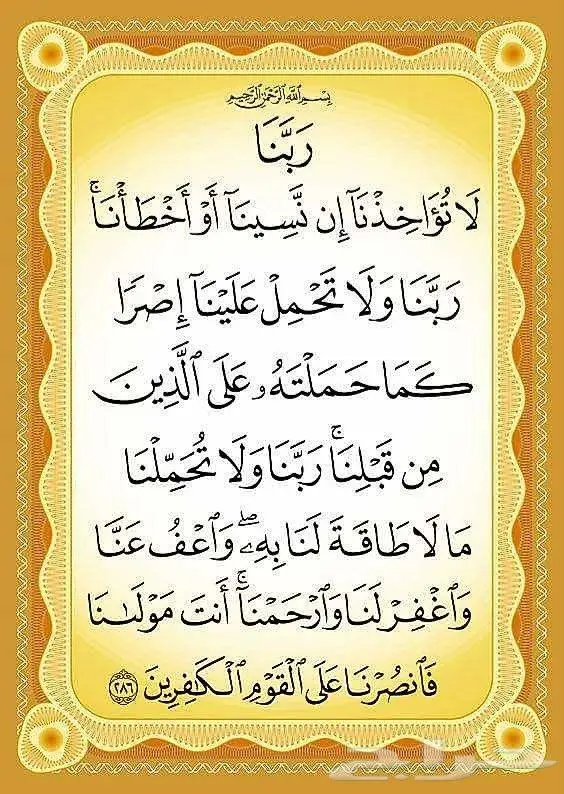 بِسْمِ ٱللَّهِ ٱلرَّحْمَٰنِ ٱلرَّحِيمِ
رَبَّنَا
لَا تُؤَاخِذْنَآ إِن نَّسِينَآ أَوْ أَخْطَأْنَاۚ
رَبَّنَا وَلَا تَحْمِلْ عَلَيْنَآ إِصْرًا
كَمَا حَمَلْتَهُۥ عَلَى ٱلَّذِينَ
مِن قَبْلِنَاۚ رَبَّنَا وَلَا تُحَمِّلْنَا
مَا لَا طَاقَةَ لَنَا بِهِۦۖ وَٱعْفُ عَنَّا
وَٱغْفِرْ لَنَا وَٱرْحَمْنَآۚ أَنتَ مَوْلَىٰنَا
فَٱنصُرْنَا عَلَى ٱلْقَوْمِ ٱلْكَٰفِرِينَ ٢٨٦
حراج